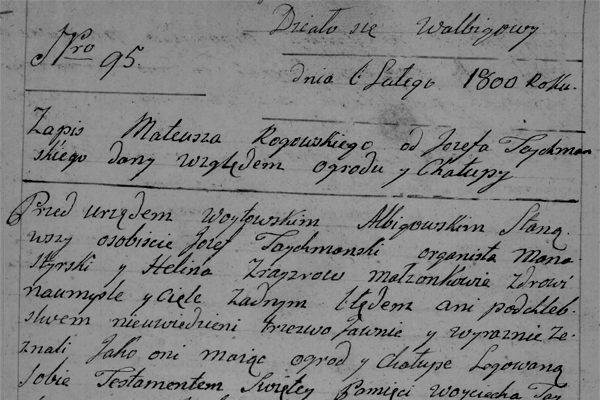 Działo się Walbigowy
Nro 95.
dnia 6 Lutego 1800 Roku.
Zapis Mateusza Rogowskiego od Jozefa Tajchman
skiego dany względem ogrodu y Chałupy
Przed urzędem woytowskim Albigowskim Staną
wszy osobiscie Jozef Taychmanski organista Mona
styrski y Helina małzonkowie Zdrowi
naumysle y ciele Żadnym błędem ani podchleb
stwem nieuwiedzieni trzezwo Jawnie y wyraznie Ze
znali Jako oni maiąc ogrod y Chałupe Legowaną
Sobie Testamentem Swiętey Pamięci Woyciecha Tay